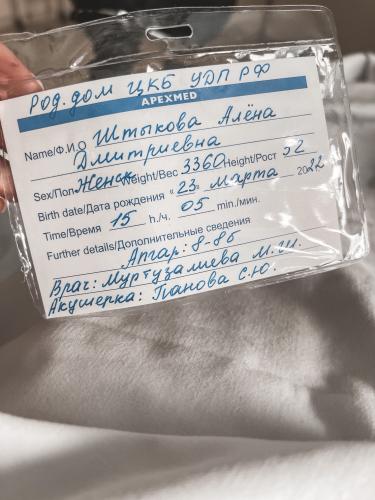 Род. дом ЦКБ УДП РФ
APEXMED
Name/Ф.И.О Штыкова Алёна
Дмитриевна
Sex/Пол Женск Weight/Вес 3360 Height/Рост 52
Birth date/Дата рождения «23» марта 2022
Time/Время 15 h./ч. 05 min./мин.
Further details/Дополнительные сведения
Апгар: 8-8б
Врач: Муртузалиева М.Ш.
Акушерка: Панова С.Ю.